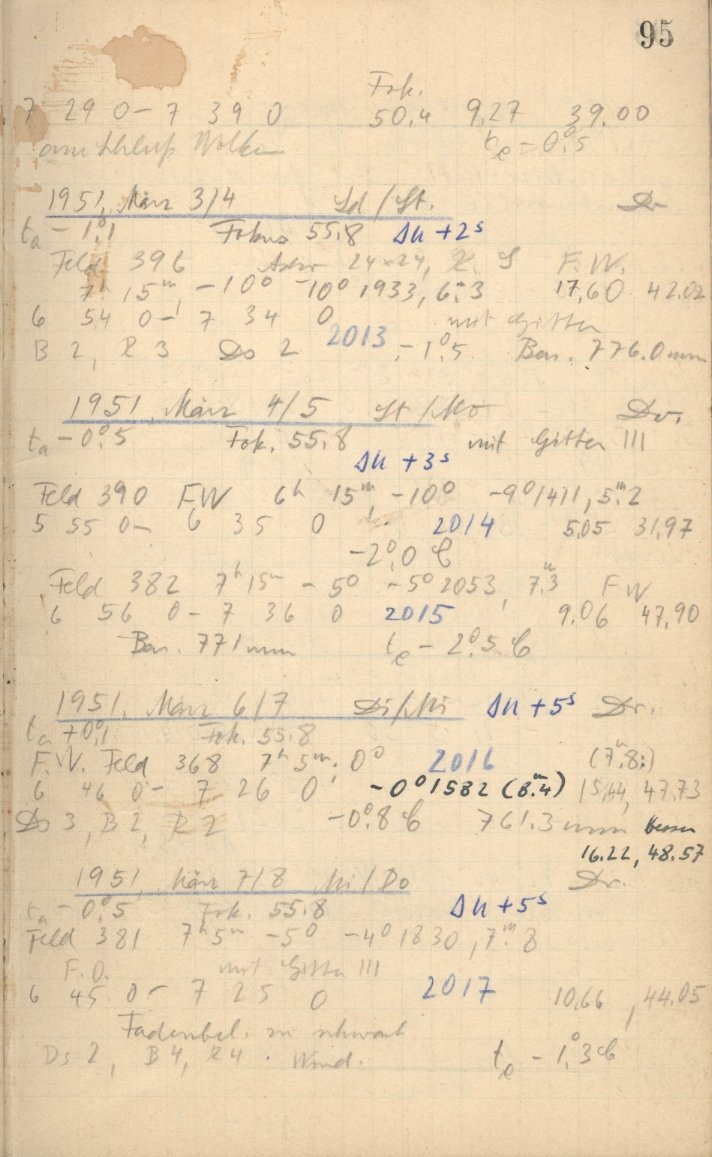 95
Fok.
7 29 0 – 7 39 0 50.4 9,27 39.00
am Schluß Wolken te – 0°,5
1951, März 3/4 Sd/St. Dr
ta – 1°,1 Fokus 55,8 Δu +2s
Feld 396 24×24, F.W.
7h 15m, –10° –10° 1933, 6m,3 17,60 42.02
6 54 0 – 7 34 0 mit Gitter
B 2, R 3 Ds 2 2013 – 1°,5 Bar. 776.0 mm
1951, März 4/5 St/Mo Dr.
ta – 0°,5 Fok. 55,8 mit Gitter III
Δu +3s
Feld 390 F.W 6h 15m –10° –9° 1411, 5m,2
5 55 0 – 6 35 0 2014 5,05 31,97
–2°,0 C
Feld 382 7h 15m – 5° – 5° 2053, 7m,3 F W
6 56 0 – 7 36 0 2015 9,06 47,90
Bar. 771 mm te – 2°,5 C
1951, März 6/7 Di/Mi Δu +5s Dr.
ta +0°,1 Fok. 55.8
F.W. Feld 368 7h 5m, 0° 2016 (7m,8:)
6 46 0 – 7 26 0 –0° 1582 (8m,4) 15,44, 47,73
Ds 3, B 2, R 2 –0°,8 C 761.3 mm besser
16.22, 48.57
1951, März 7/8 Mi/Do Dr.
ta – 0°,5 Fok. 55.8 Δu +5s
Feld 381 7h 5m –5° –4° 1830, 7m,8
F.O. mit Gitter III
6 45 0 – 7 25 0 2017 10,66, 44.05
Fadenbel. zu schwach
Ds 2, B 4, R 4. Wind. te – 1°,3 C